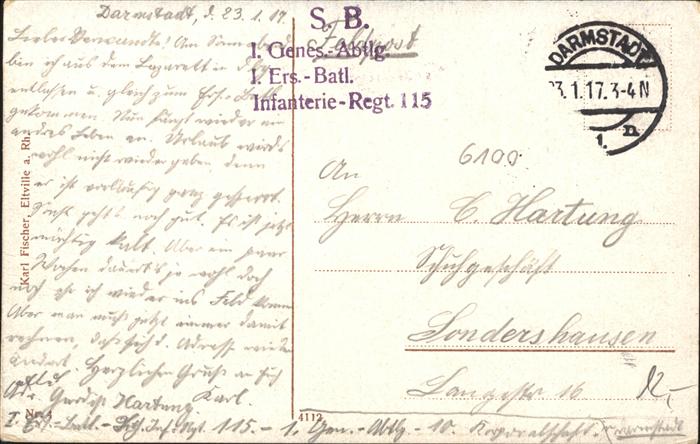 Darmstadt, d. 23.1.17.
Liebe Verwandte! Am
bin ich aus dem Lazarett in
entlassen u. gleich zum Ers. Batl.
gekommen. Nun fängt wieder ein
andres Leben an. Urlaub wirds
wohl nicht wieder geben denn
er ist vorläufig ganz gesperrt.
Sonst geht's noch gut. Es ist jetzt
mächtig kalt. Aber ein paar
Wochen dauert's ja wohl doch
noch ehe ich wieder ins Feld komme
Aber man muß jetzt immer damit
rechnen, daß sich d. Adresse wieder
ändert. Herzliche Grüße an Euch
Karl.
Hartung
I. Ers.-Batl. Inf. Rgt. 115. - 1. Gen.-Abtlg. - 10. Korporalschaft. Darmstadt
S. B.
I. Genes.-Abtlg.
I. Ers.-Batl.
Infanterie-Regt. 115
Feldpost
DARMSTADT
3.1.17.3-4N
1. n
6100
An
Herrn C. Hartung
Schuhgeschäft
Sondershausen
Langestr 16
Karl Fischer, Eltville a. Rh.
No. 4
4112